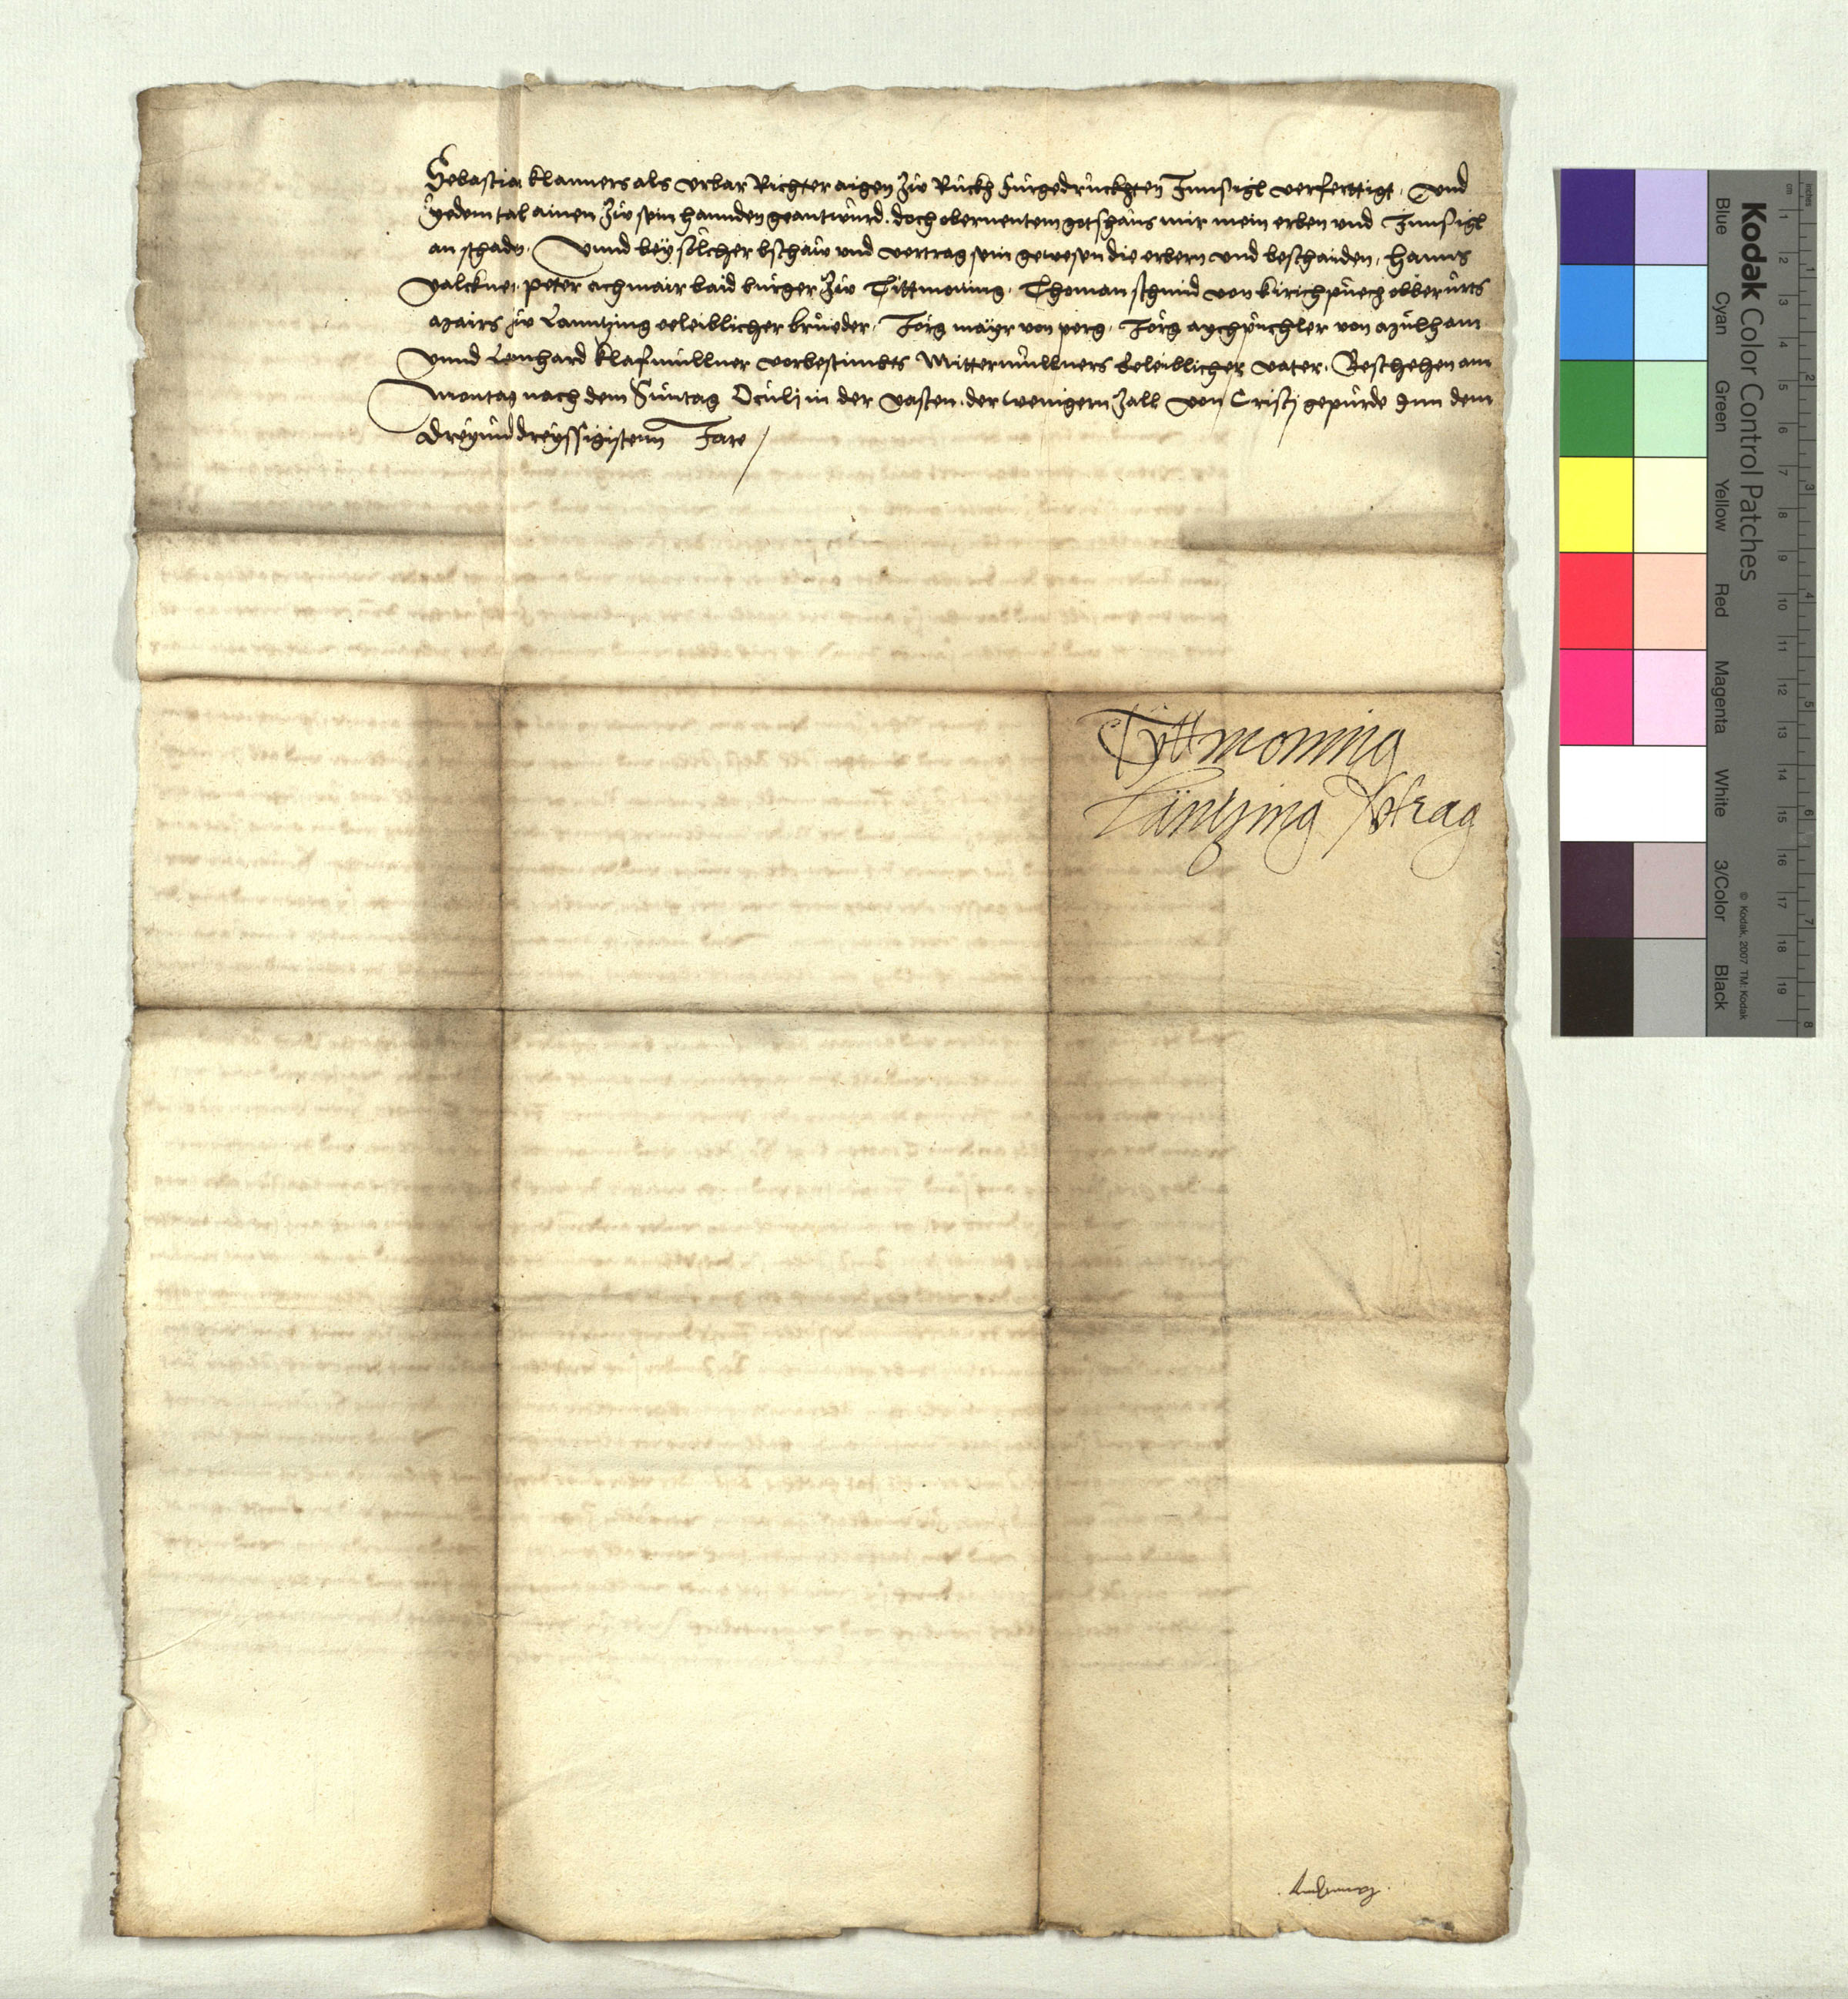 Sebastian klanners als Urbar Richter aigen Zw Rückh fürgedrückhten Innsigl verferttigt. Und
yedem tal ainen Zw sein hannden geantwurd. doch obernentem gotshaus mir mein erben und Innsigl
an schadn. Unnd bey sölcher bschaw und vertrag sein gewesen die erbern und beschaiden, hanns
valckner, peter achmair baid burger Zw Tittmoning. Thoman schmid von kirichpüech obberürts
Mairs zw Lanntzing eeleiblicher brueder. Jorg mayr von perg. Jörg aychpuchler von Mülham
Unnd Leonhard klafmüllner vorbestimbts Mittermüllners Eeleiblicher vater. Beschehen am
Montag nach dem Suntag Oculi in der vasten. der wenigern Zall von Cristj gepurde Inn dem
dreyunddreyssigistenn Jare
Tyttmoning
Läntzing Vertrag